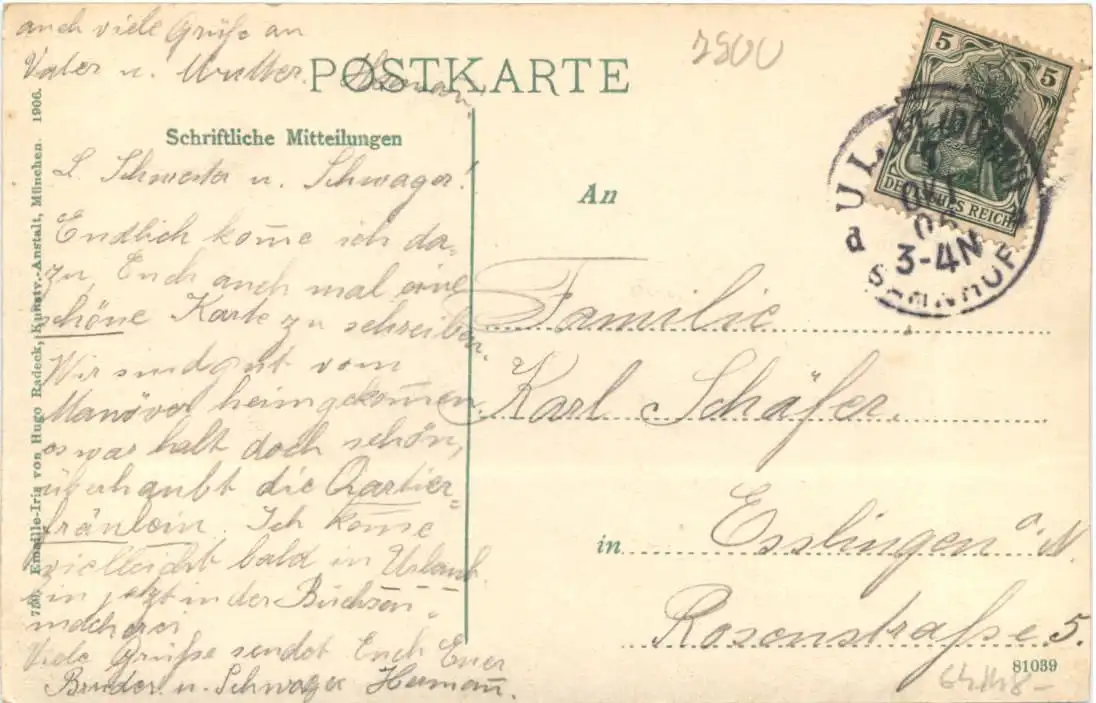 auch viele Grüße an
Vater u. Mutter. Herman̄.
POSTKARTE
7800
Schriftliche Mitteilungen
L. Schwester u. Schwager!
Endlich kom̄e ich da-
zu, Euch auch mal eine
schöne Karte zu schreiben.
Wir sind gut vom
Manöver heimgekom̄en,
es war halt doch schön,
überhaubt die Qartier=
fränlein. Ich kom̄e
vielleicht bald in Urlaub
bin jetzt in der Büchsen-
macherei
Viele Grüße sendet Euch Euer
Bruder u. Schwager Herman̄.
An
Familie
Karl Schäfer.
in Esslingen a/N
Rosenstraße 5.
5 5
DEUTSCHES REICH
ULM
3-4N
BAHNHOF
750. Emaille-Iris von Hugo Radeck, Kunstv.-Anstalt, München. 1906.
81039